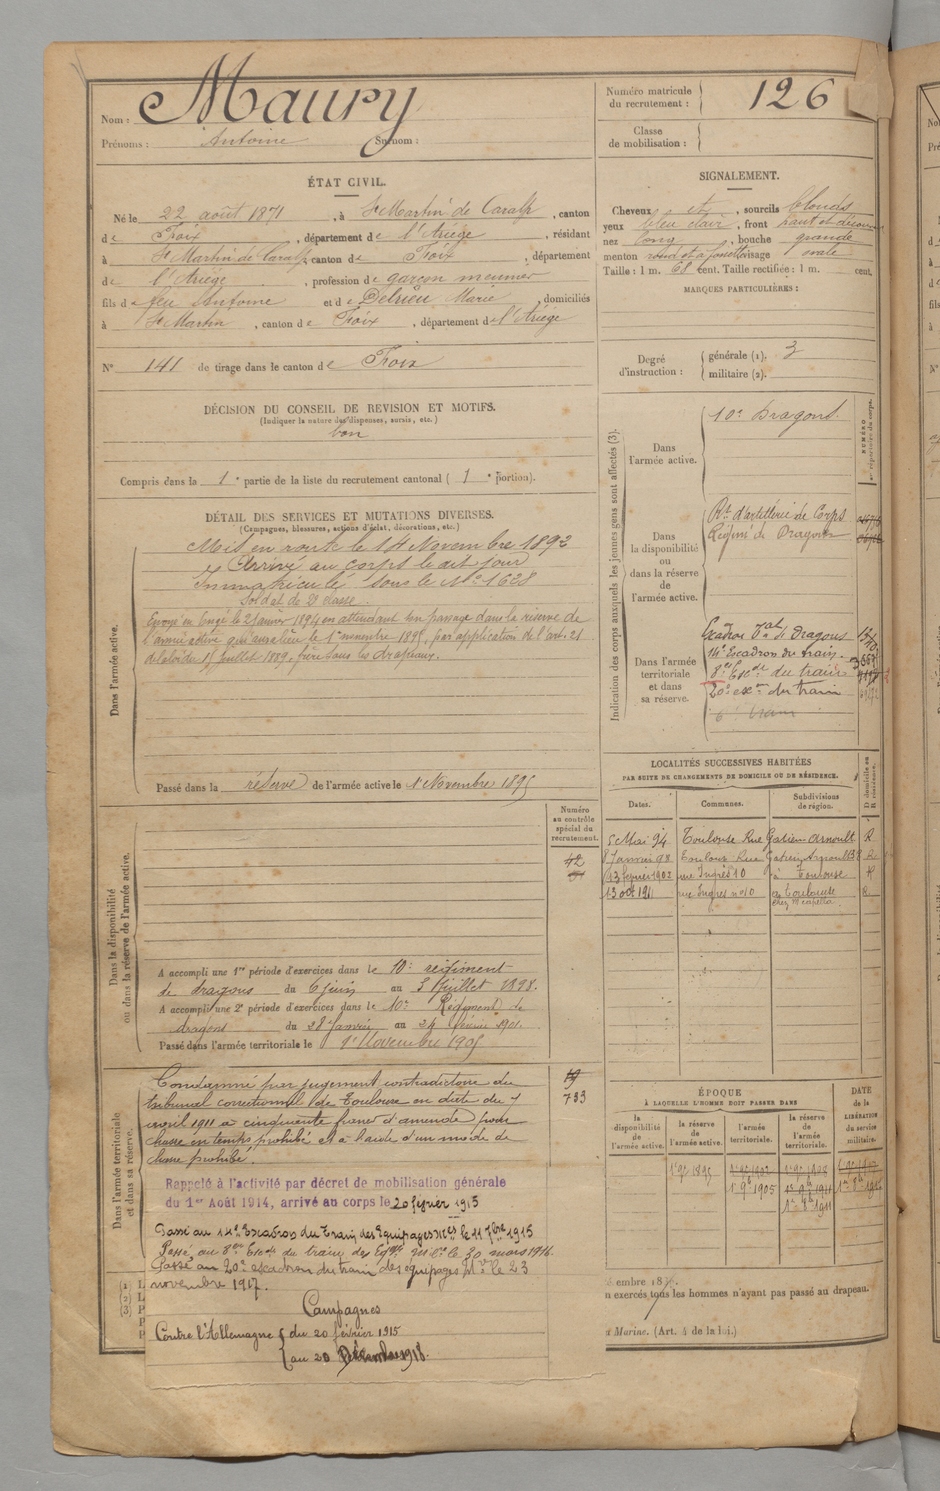 Nom : Maury
Prénoms : Antoine Surnom :
ÉTAT CIVIL.
Né le 22 août 1871, à St Martin de Caralp, canton
de Foix, département de l'Ariège, résidant
à St Martin de Caralp, canton de Foix, département
de l'Ariège, profession de garçon meunier
fils de feu Antoine et de Delrieu Marie, domiciliés
à St Martin, canton de Foix, département de l'Ariège
N° 141 de tirage dans le canton de Foix
DÉCISION DU CONSEIL DE REVISION ET MOTIFS.
(Indiquer la nature des dispenses, sursis, etc.)
bon
Compris dans la 1e partie de la liste du recrutement cantonal (1e portion).
DÉTAIL DES SERVICES ET MUTATIONS DIVERSES.
(Campagnes, blessures, actions d'éclat, décorations, etc.)
Dans l'armée active.
Mis en route le 14 Novembre 1892
Arrivé au corps le dit jour
Immatriculé sous le No 1628
Soldat de 2e classe.
Envoyé en congé le 21 Janvier 1894 en attendant son passage dans la réserve de
l'armée active qui aura lieu le 1er novembre 1895, par application de l'art. 21
de la loi du 15 juillet 1889, frère sous les drapeaux.
Passé dans la réserve de l'armée active le 1er Novembre 1895
Numéro
au contrôle
spécial du
recrutement.
42
Dans la disponibilité
ou dans la réserve de l'armée active.
A accompli une 1re période d'exercices dans le 10e régiment
de dragons du 6 juin au 3 juillet 1898.
A accompli une 2e période d'exercices dans le 10e Régiment de
dragons du 28 Janvier au 24 février 1901.
Passé dans l'armée territoriale le 1er Novembre 1905
Dans l'armée territoriale
et dans sa réserve.
19
733
Condamné par jugement contradictoire du
tribunal correctionnel de Toulouse en date du 7
avril 1911 à cinquante francs d'amende pour
chasse en temps prohibé et à l'aide d'un mode de
chasse prohibé.
Rappelé à l'activité par décret de mobilisation générale
du 1er Août 1914, arrivé au corps le 20 février 1915
Passé au 14e Escadron du Train des Equipages Mres le 11 7bre 1915
Passé au 8e Escon du train des Eqges Mres le 30 mars 1916.
Passé au 20e escadron du train des équipages Mres le 23
novembre 1917.
Campagnes
Contre l'Allemagne { du 20 février 1915
{ au 20 Décembre 1918.
(1) L
(2) L
(3) P
P
P
Numéro matricule
du recrutement : 126
Classe
de mobilisation :
SIGNALEMENT.
Cheveux et, sourcils blonds
yeux bleu clair, front haut et découvert
nez long, bouche grande
menton rond et à fossette visage ovale
Taille : 1 m. 68 cent. Taille rectifiée : 1 m. cent.
MARQUES PARTICULIÈRES :
Degré
d'instruction :
générale (1). 3
militaire (2).
Indication des corps auxquels les jeunes gens sont affectés (3).
NUMÉRO
au répertoire du corps.
Dans
l'armée active.
10e Dragons.
Dans
la disponibilité
ou
dans la réserve
de
l'armée active.
Rt d'artillerie de Corps
Régiment de Dragons
Dans l'armée
territoriale
et dans
sa réserve.
Escadron de Dragons
14e Escadron du train.
8e Escon du train
20e escon du train
LOCALITÉS SUCCESSIVES HABITÉES
PAR SUITE DE CHANGEMENTS DE DOMICILE OU DE RÉSIDENCE.
D domicile ou
R résidence.
Dates. Communes. Subdivisions
de région.
5 Mai 94 Toulouse Rue Gatien Arnoult R
8 Janvier 98 Toulouse Rue Gatien Arnoult R
13 février 1902 rue Ingres 10 à Toulouse R
13 oct 1911 rue Ingres no 10 Toulouse R
chez Mr
ÉPOQUE
À LAQUELLE L'HOMME DOIT PASSER DANS
DATE
de la
LIBÉRATION
du service
militaire.
la
disponibilité
de
l'armée active.
la réserve
de
l'armée active.
l'armée
territoriale.
la réserve
de
l'armée
territoriale.
1er 9bre 1895
1er 9bre 1905
embre 187
n exercés tous les hommes n'ayant pas passé au drapeau.
a Marine. (Art. 4 de la loi.)